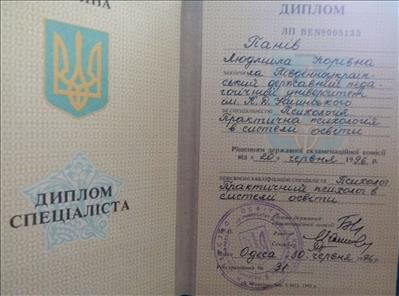 ЇНА
ДИПЛОМ
СПЕЦІАЛІСТА
ДИПЛОМ
ЛП ВЕ№005135
Панів
Людмила Юріївна
закінчила Південноукраїн-
ський державний педа-
гогічний університет
ім. К. Д. Ушинського
за спеціальністю Психологія
Практична психологія
в системі освіти
Рішенням державної екзаменаційної комісії
від «20» червня 1996 р.
присвоєно кваліфікацію спеціаліста Психолог
Практичний психолог в
системі освіти
Голова державної
екзаменаційної комісії
Ректор
Секретар
Місто Одеса 30 червня 1996 р.
Реєстраційний № 31